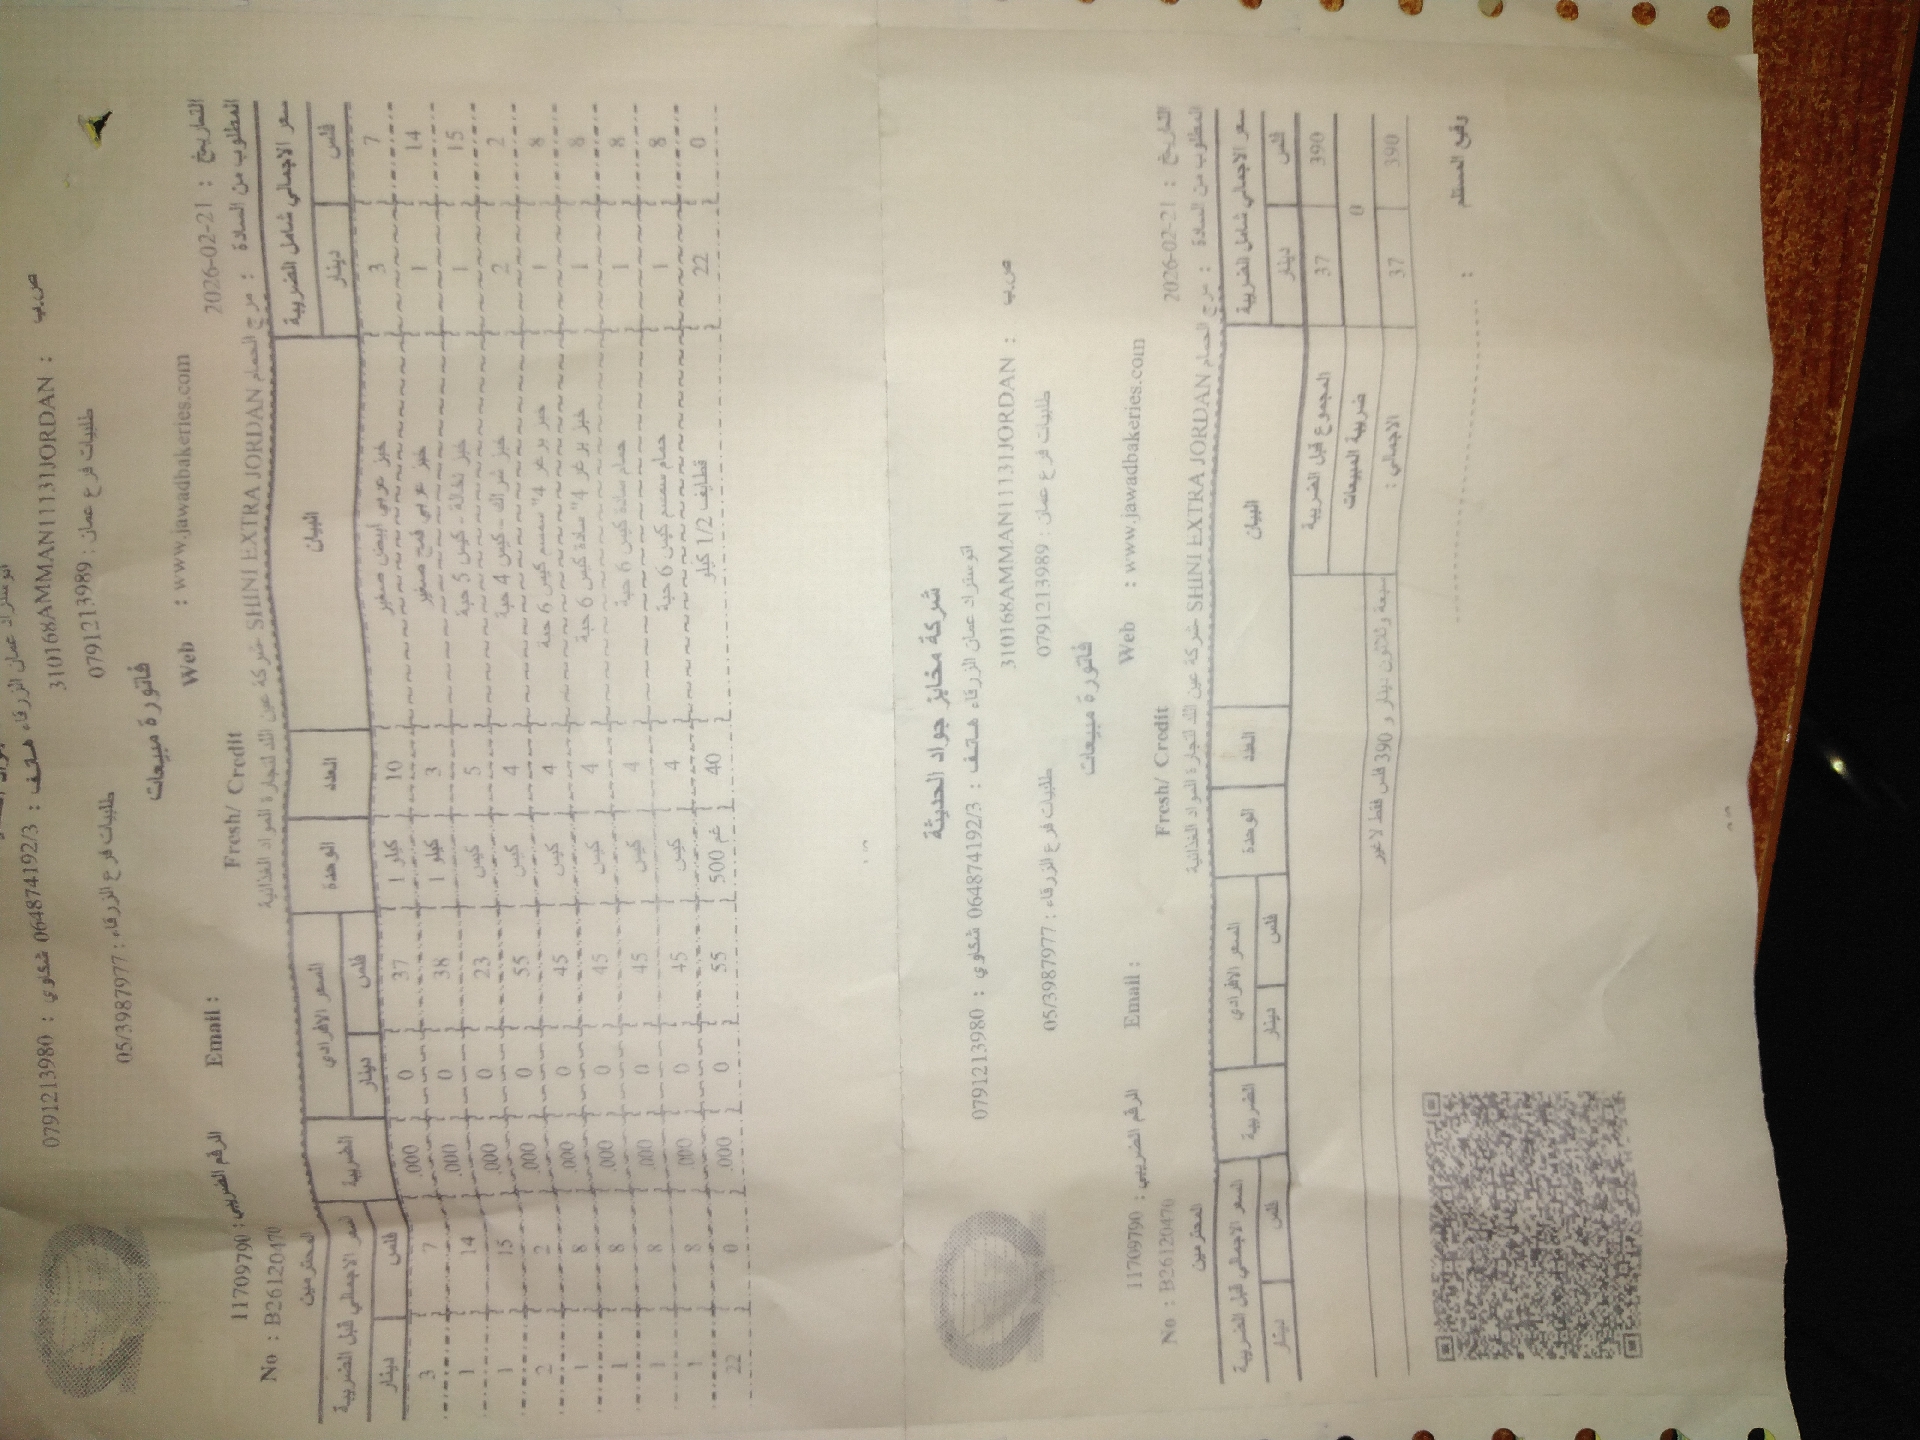 اتوستراد عمان الزرقاء هاتف : 064874192/3 شكاوي : 0791213980
ص.ب : 310168AMMAN11131JORDAN
طلبيات فرع عمان : 0791213989 طلبيات فرع الزرقاء : 05/3987977
فاتورة مبيعات
Web : www.jawadbakeries.com Email : الرقم الضريبي : 11709790
التاريخ : 2026-02-21 Fresh/ Credit No : B26120470
المطلوب من السادة : مرج الحمام SHINI EXTRA JORDAN شركة عين اللد لتجارة المواد الغذائية المحترمين
سعر الاجمالي شامل الضريبة البيان العدد الوحدة السعر الافرادي الضريبة السعر الاجمالي قبل الضريبة
فلس دينار فلس دينار فلس دينار
7 3 خبز عربي ابيض صغير 10 كيلو 1 37 0 .000 7 3
14 1 خبز عربي قمح صغير 3 كيلو 1 38 0 .000 14 1
15 1 خبز نخالة - كيس 5 حبة 5 كيس 23 0 .000 15 1
2 2 خبز شراك - كيس 4 حبة 4 كيس 55 0 .000 2 2
8 1 خبز برغر 4" سمسم كيس 6 حبة 4 كيس 45 0 .000 8 1
8 1 خبز برغر 4" سادة كيس 6 حبة 4 كيس 45 0 .000 8 1
8 1 حمام سادة كيس 6 حبة 4 كيس 45 0 .000 8 1
8 1 حمام سمسم كيس 6 حبة 4 كيس 45 0 .000 8 1
0 22 قطايف 1/2 كيلو 40 500 غم 55 0 .000 0 22
شركة مخابز جواد الحديثة
اتوستراد عمان الزرقاء هاتف : 064874192/3 شكاوي : 0791213980
ص.ب : 310168AMMAN11131JORDAN
طلبيات فرع عمان : 0791213989 طلبيات فرع الزرقاء : 05/3987977
فاتورة مبيعات
Web : www.jawadbakeries.com Email : الرقم الضريبي : 11709790
التاريخ : 2026-02-21 Fresh/ Credit No : B26120470
المطلوب من السادة : مرج الحمام SHINI EXTRA JORDAN شركة عين اللد لتجارة المواد الغذائية المحترمين
سعر الاجمالي شامل الضريبة البيان العدد الوحدة السعر الافرادي الضريبة السعر الاجمالي قبل الضريبة
فلس دينار فلس دينار فلس دينار
390 37 المجموع قبل الضريبة
0 ضريبة المبيعات
390 37 الاجمالي : سبعة وثلاثون دينار و 390 فلس فقط لاغير
وقيع المستلم : ....................